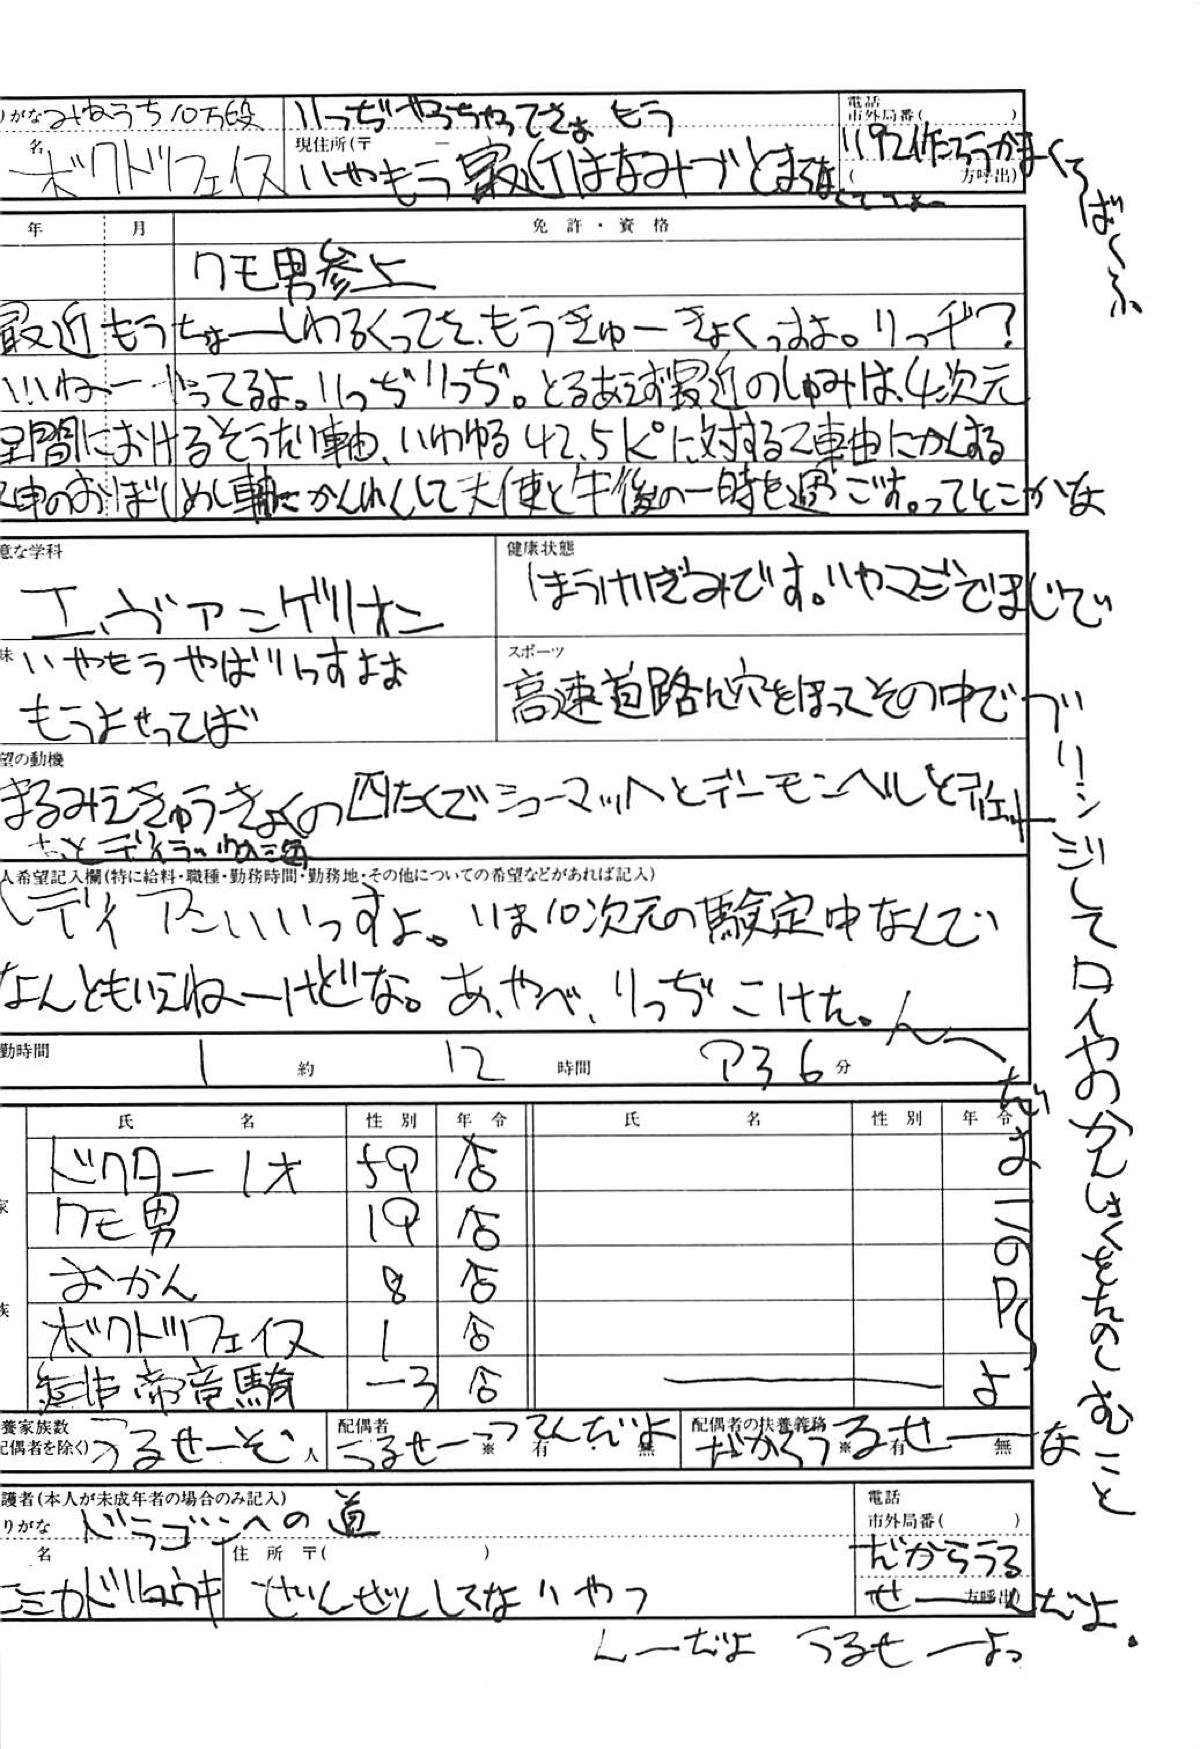 りがな みねうち10万段
名 ボクドツフェイス
りっぢやっちゃってさぁ もう
現住所(〒 ー
いやもう最近はなみづとまらなくてさぁー
電話
市外局番( )
1192作ろうかまくらばくふ
( 方呼出)
年 月 免許・資格
クモ男参上
最近もうちょーしわるくってさ、もうきゅーきょくっすよ。りっヂ?
いいねー やってるよ。りっぢりっぢ。とるあえず最近のしゅみは、4次元
空間におけるそうたい軸、いわゆる42.5K°に対するZ軸にかんする
Z軸のおぼしめし軸にかんれんして天使と午後の一時を過ごす。ってとこかな
意な学科
エヴァンゲリオン
健康状態
ほうけいぎみです。いやマジでまじで
味 いやもうやばいっすよお
もうよせってば
スポーツ
高速道路に穴をほってその中で
ブリッジしてロイヤのかんしょくをたのしむこと
望の動機
まるみえきゅうきょくの四たくでシューマッハとデーモンヘルとディエット
あとディラックの海
人希望記入欄(特に給料・職種・勤務時間・勤務地・その他についての希望などがあれば記入)
ヘディアンいいっすよ。いま10次元の験定中なんで
なんともいえねーけどな。あ、やべ、りっぢこけた。んー
勤時間 1 約 12 時間 736 分
氏 名 性別 年令 氏 名 性別 年令
ドクター1才 59 否
家 クモ男 19 否
おかん 8 否
族 ボクドツフェイス 1 否
帝竜騎 -3 否
だよ
このPC
よ
養家族数
配偶者を除く) うるせーぞ 人
配偶者
うるせーってんだよ
※ 有 無
配偶者の扶養義務
だからうるせーな
※ 有 無
護者(本人が未成年者の場合のみ記入)
りがな ドラゴンへの道
名 ミカドリュウキ
住所 〒( )
ぜんぜんしてないやつ
電話
市外局番( )
だからうる
せーんだよ。
方呼出)
んーだよ うるせーよっ